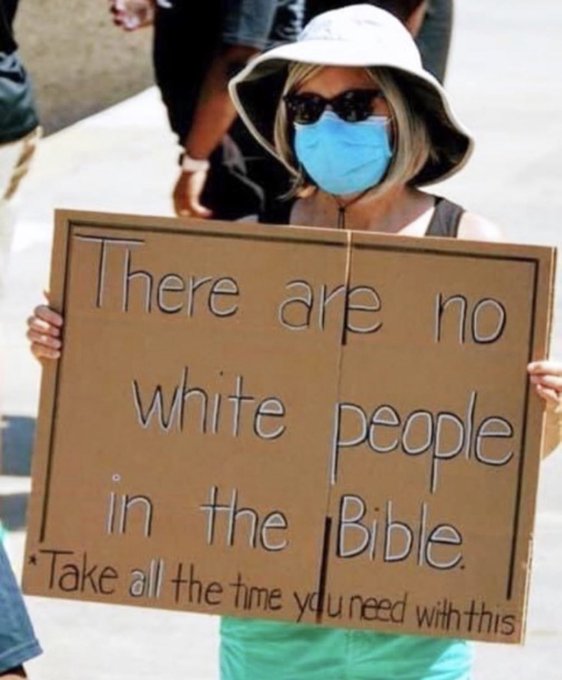 There are no
white people
in the Bible.
*Take all the time you need with this